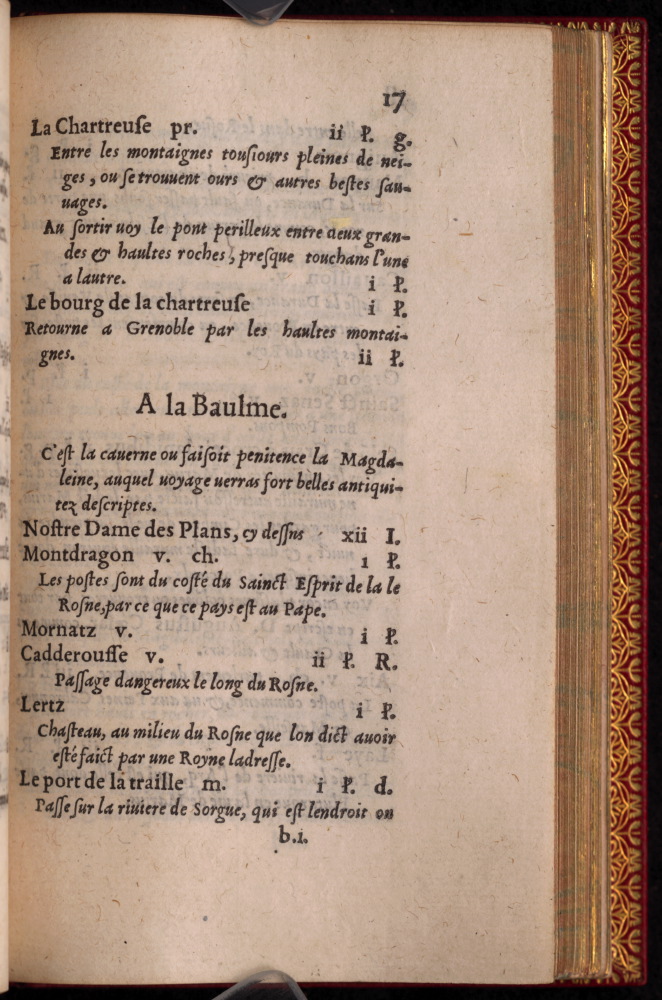 17
La Chartreuſe pr. ii P. g.
Entre les montaignes touſiours pleines de nei-
ges, ou ſe trouuent ours & autres beſtes ſau-
uages.
Au ſortir uoy le pont perilleux entre deux gran-
des & haultes roches, preſque touchans l'une
a lautre. i P.
Le bourg de la chartreuſe i P.
Retourne a Grenoble par les haultes montai-
gnes. ii P.
A la Baulme.
C'eſt la cauerne ou faiſoit penitence la Magda-
leine, auquel uoyage uerras fort belles antiqui-
tez deſcriptes.
Noſtre Dame des Plans, cy deſſus xii I.
Montdragon v. ch. i P.
Les poſtes ſont du coſté du Sainct Eſprit de la le
Roſne, par ce que ce pays eſt au Pape.
Mornatz v. i P.
Cadderouſſe v. ii P. R.
Paſſage dangereux le long du Roſne.
Lertz i P.
Chaſteau, au milieu du Roſne que lon dict auoir
eſté faict par une Royne ladreſſe.
Le port de la traille m. i P. d.
Paſſe ſur la riuiere de Sorgue, qui eſt lendroit ou
b.i.